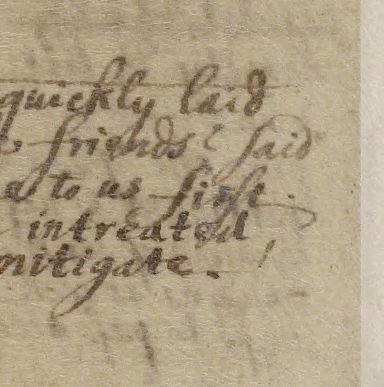 quickly laid
friends? said
to us first.
intreated
mitigate.